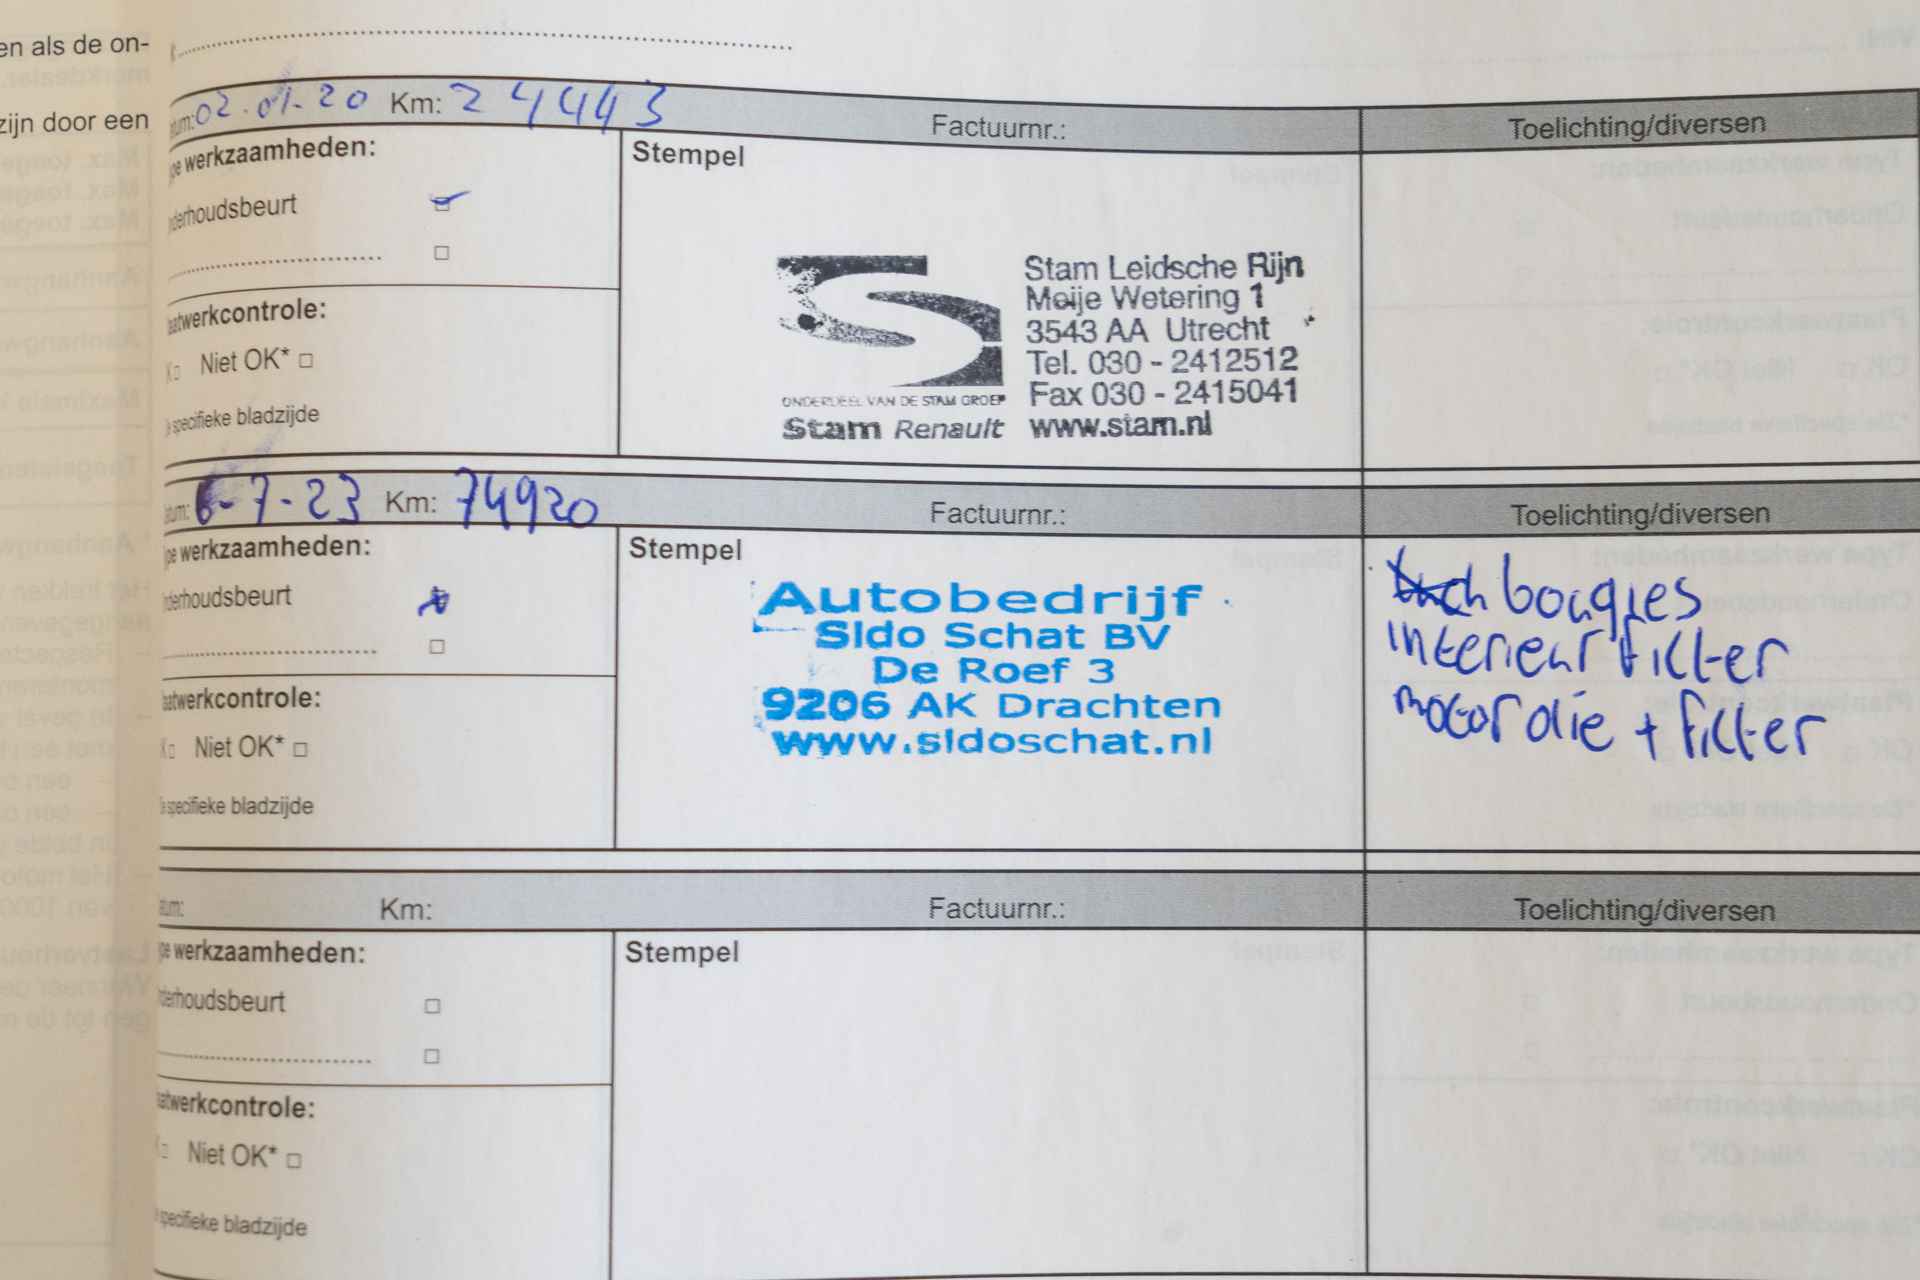 en als de on-
zijn door een
02.01.20 Km: 24443 Factuurnr.: Toelichting/diversen
werkzaamheden: Stempel
derhoudsbeurt
Stam Leidsche Rijn
Meije Wetering 1
3543 AA Utrecht
Tel. 030 - 2412512
Fax 030 - 2415041
www.stam.nl
ONDERDEEL VAN DE STAM GROEP
Stam Renault
atwerkcontrole:
Niet OK*
specifieke bladzijde
6-7-23 Km: 74920 Factuurnr.: Toelichting/diversen
werkzaamheden: Stempel
derhoudsbeurt
Autobedrijf
Sldo Schat BV
De Roef 3
9206 AK Drachten
www.sldoschat.nl
bougies
interieur filter
motor olie + filter
atwerkcontrole:
Niet OK*
specifieke bladzijde
Km: Factuurnr.: Toelichting/diversen
werkzaamheden: Stempel
derhoudsbeurt
atwerkcontrole:
Niet OK*
specifieke bladzijde